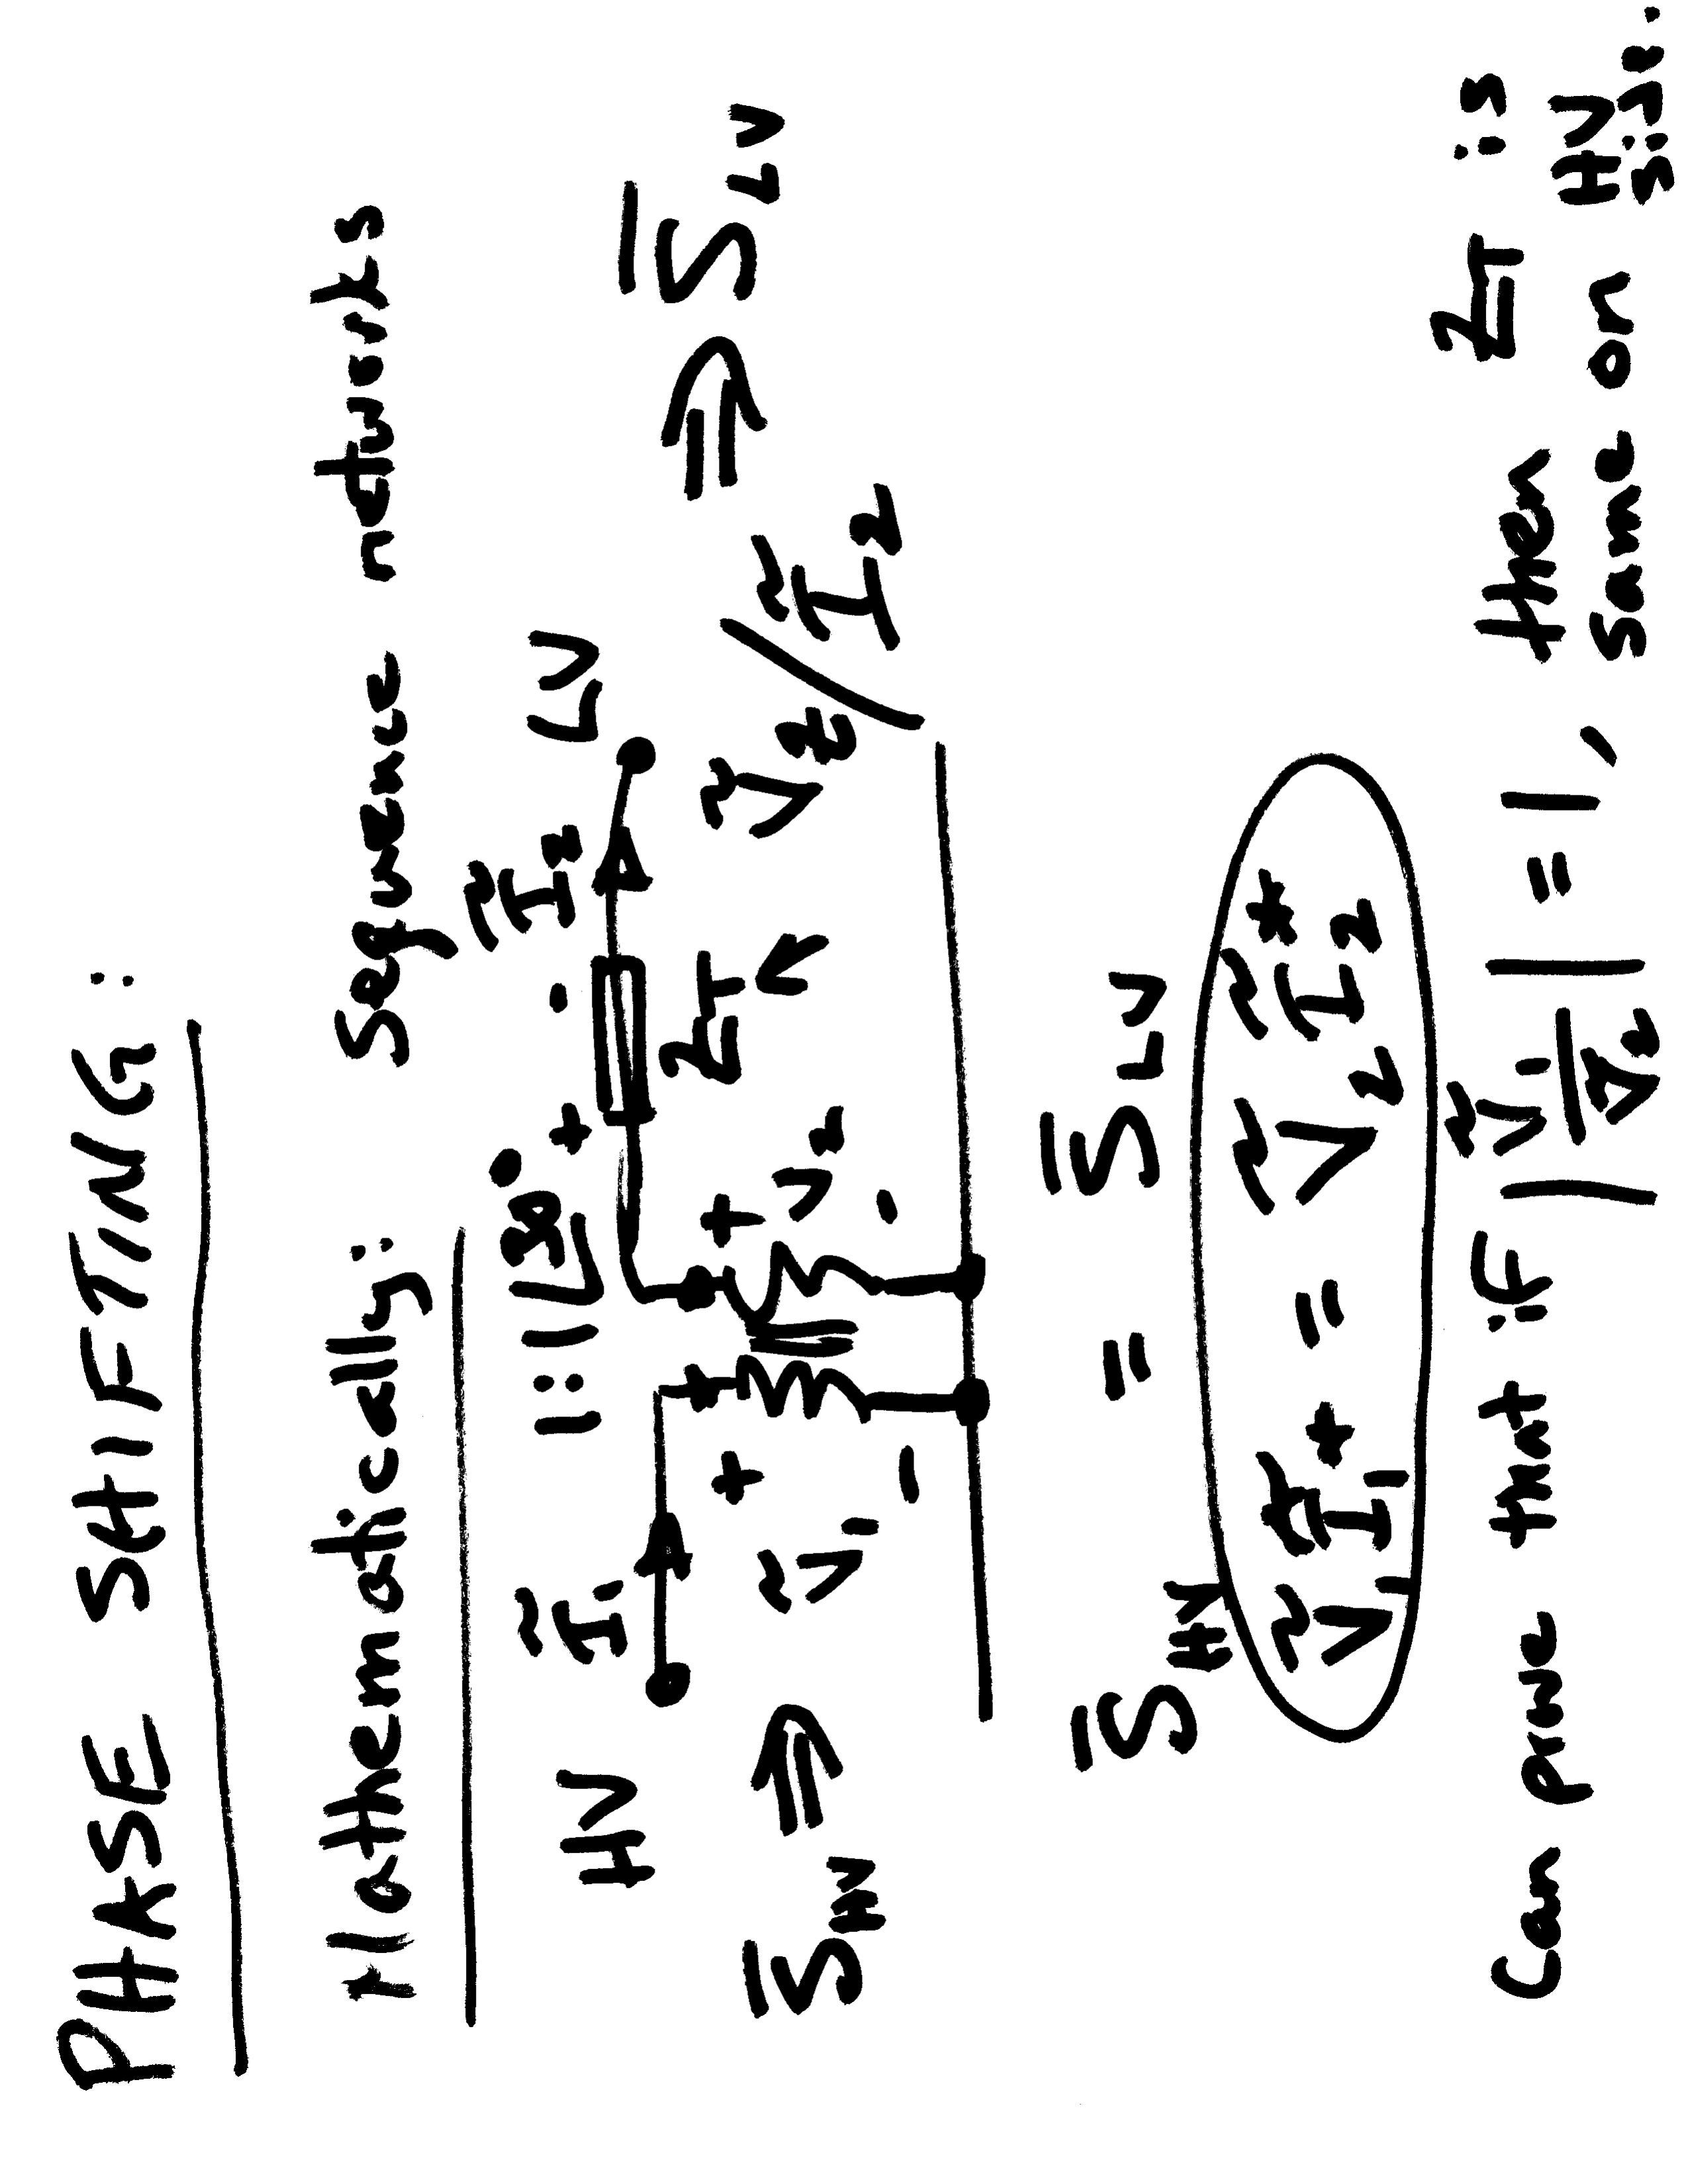 PHASE SHIFTING:
Mathematically: Sequence networks
HV Ĩ₁ 1:1∠30° + - Ĩ₂ LV
S̅HV ⇒ Ṽ₁ + - + V₂ - ZT Ṽ₂/Ĩ₂ ⇒ S̅LV
S̅HV = S̅LV
Ṽ₁ Ĩ₁* = Ṽ₂ Ĩ₂*
Can prove that if |Ṽ₁/Ṽ₂| = 1, then ZT is
same on HV
side.